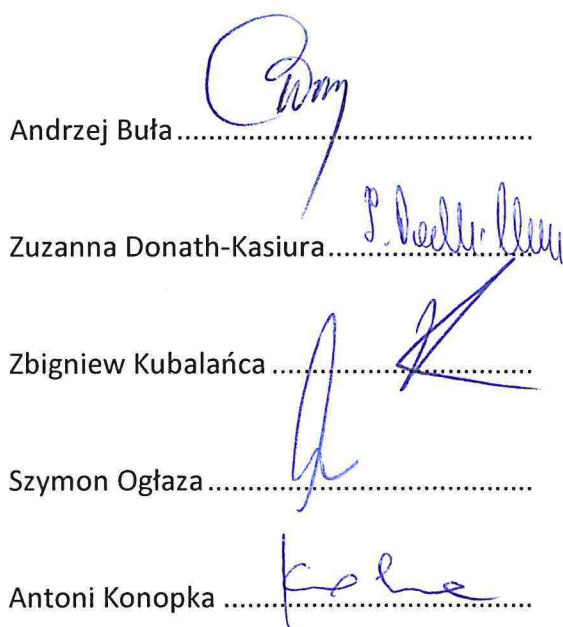 Andrzej Buła..............................................
Zuzanna Donath-Kasiura..........................
Zbigniew Kubalańca .................................
Szymon Ogłaza..........................................
Antoni Konopka ........................................